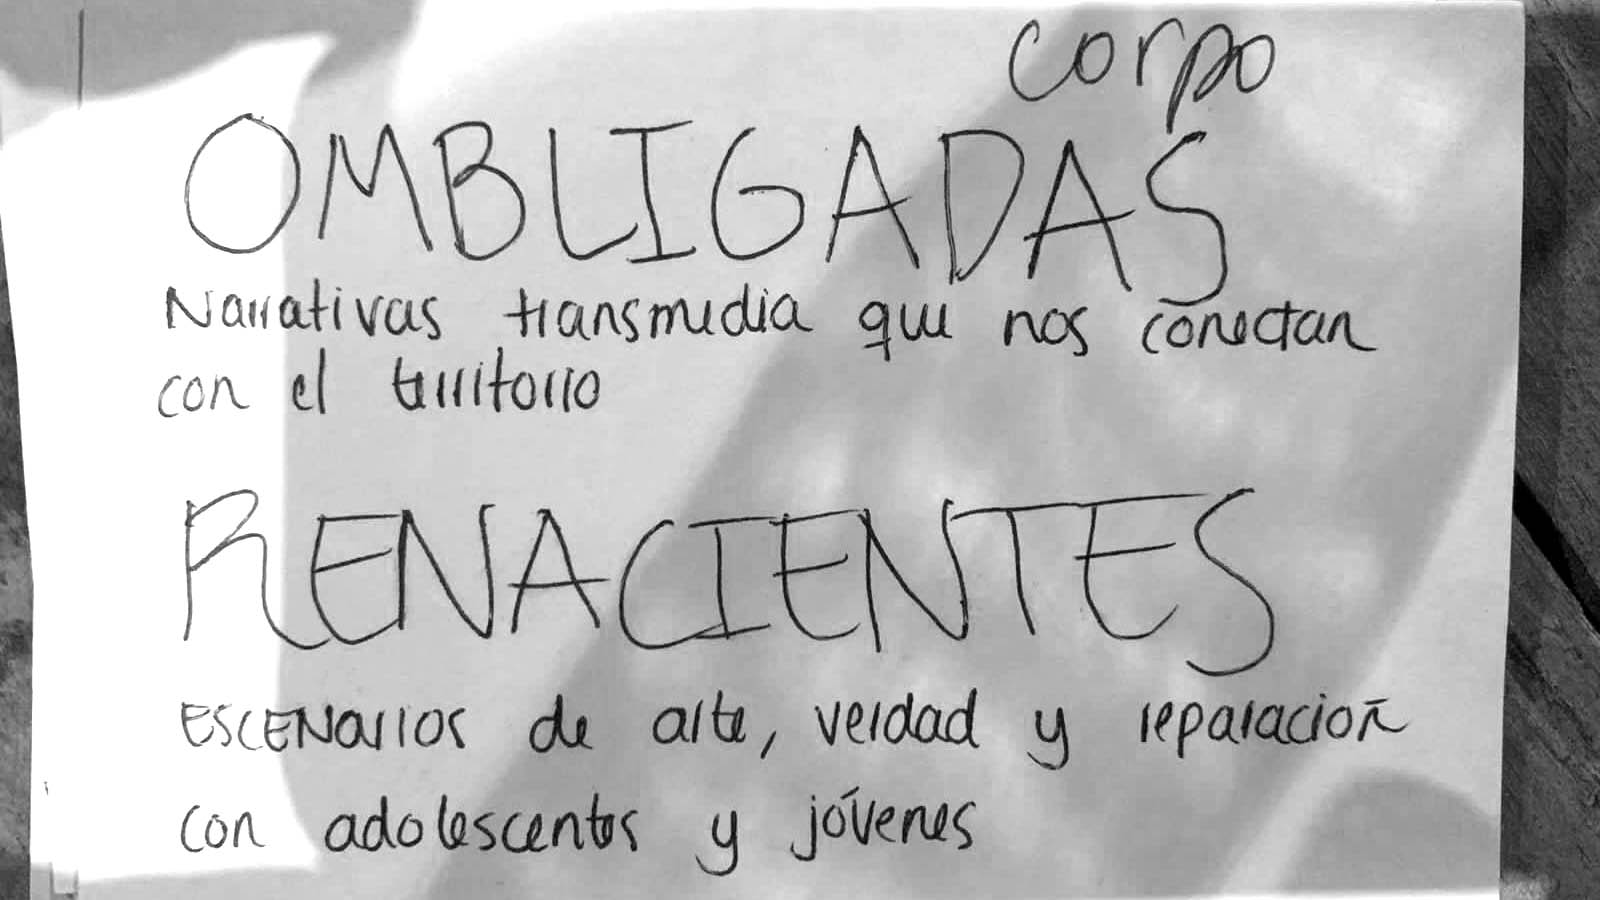 corpo
OMBLIGADAS
Narrativas transmedia que nos conectan
con el territorio
RENACIENTES
ESCENarios de arte, verdad y reparación
con adolescentes y jóvenes